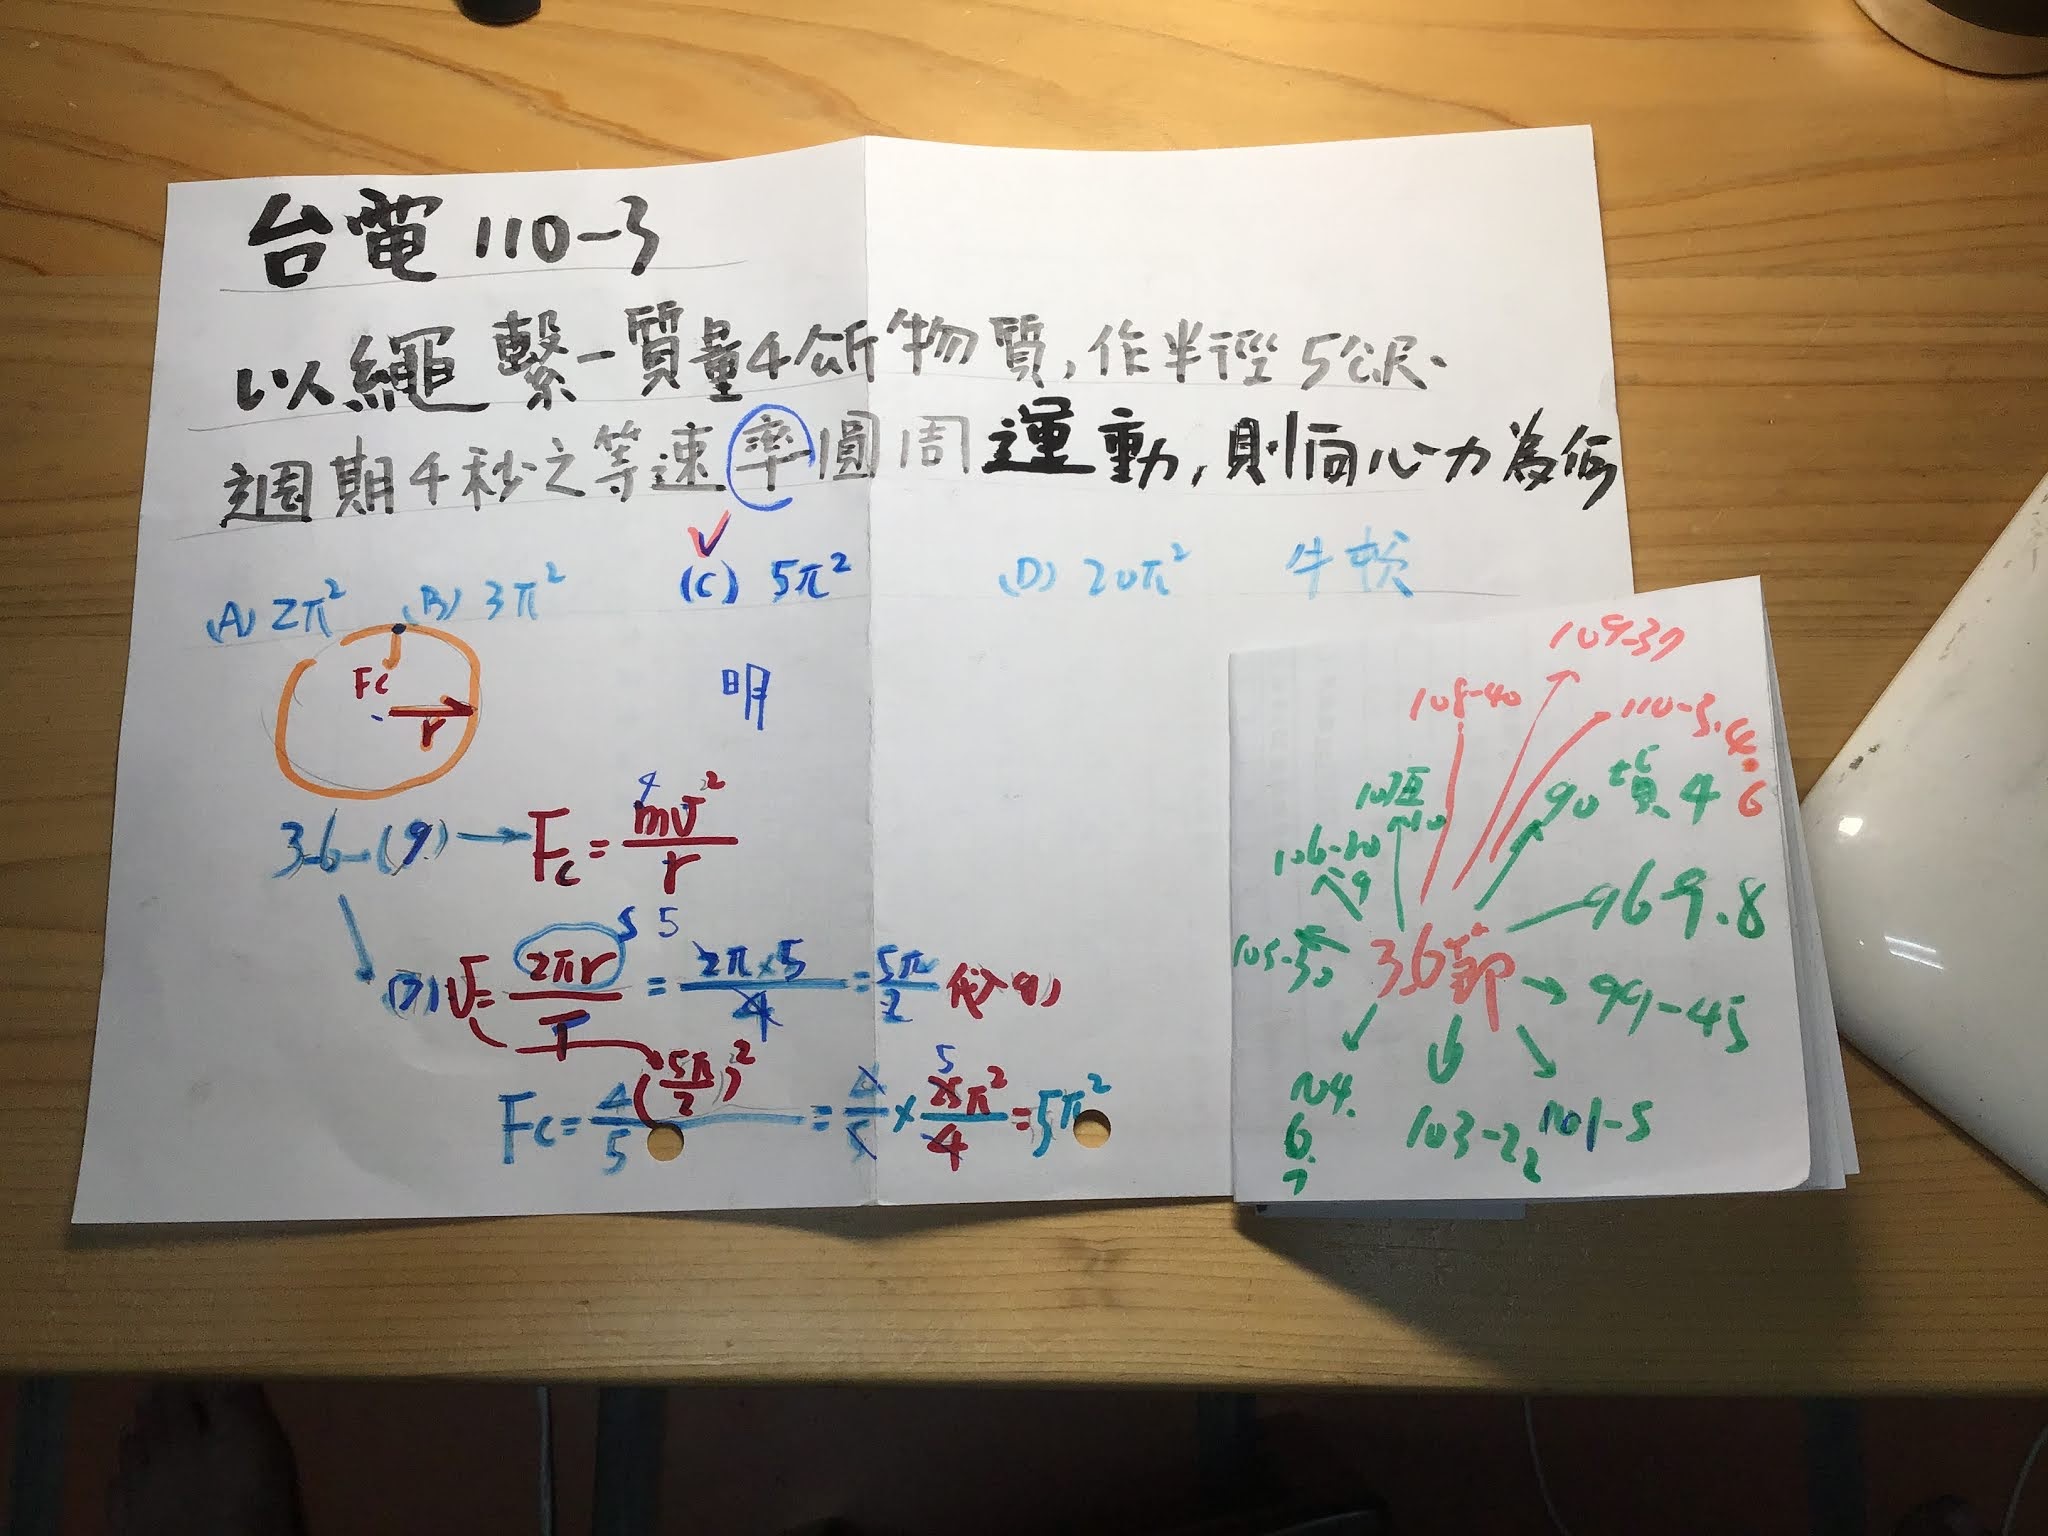 台電 110-3
以繩繫一質量4公斤物質,作半徑5公尺、
週期4秒之等速率圓周運動,則向心力為何
✓
(A) 2π² (B) 3π² (C) 5π² (D) 20π² 牛頓
Fc
r
明
3-6-(9) → Fc = mv²/r
4
5
(7) v = 2πr/T = 2π×5/4 = 5π/2 代入(9)
S
Fc = 4/5 (5π/2)² = 4/5 × 25π²/4 = 5π²
5
109-37
108-40
110-3.4.6
90 4
106-20
969.8
105-30
3.6節
99-45
104.
6.
7
103-22
101-5